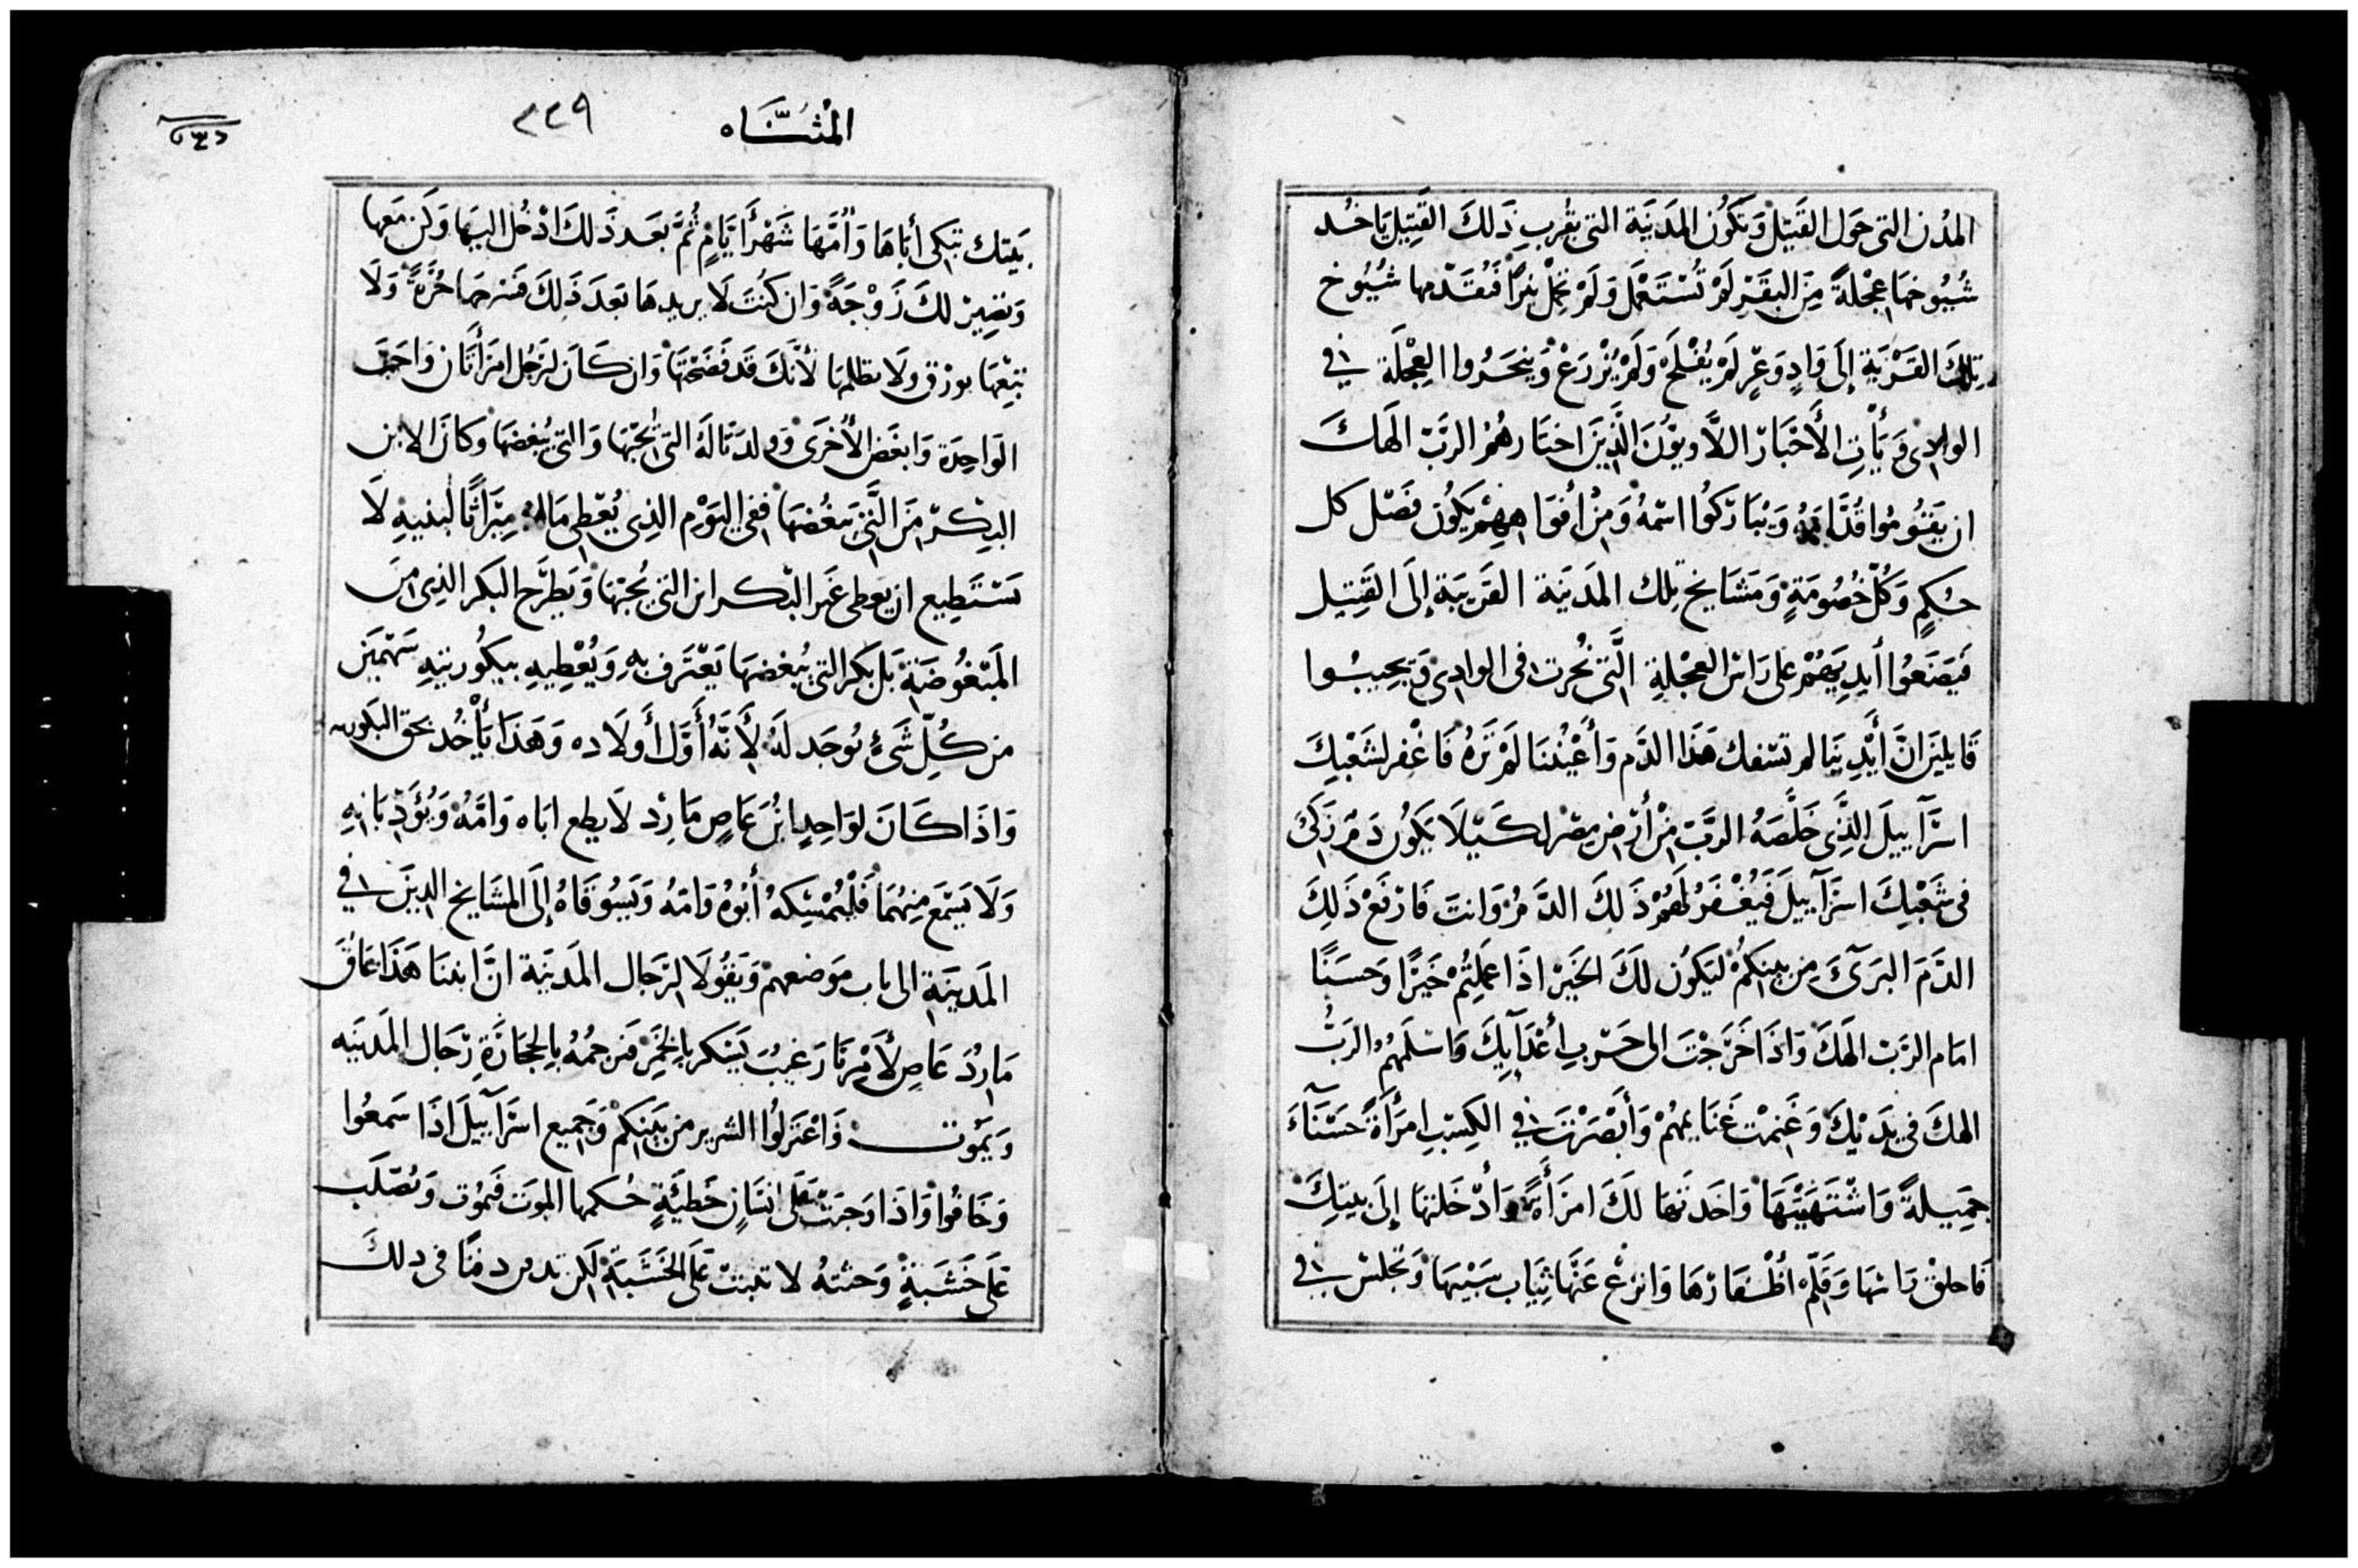 المدُن التى حَول القَتِيل وَتكُون المَدَينَة التى بقُربِ ذَلكَ القَتِيل يَاخُد
شُيُوخهَا عِجْلةً مِنَ البقَرِ لَمْ تُسْتَعَمَل وَلَمْ تحْمِلْ نِيرًا فَتُقَدّمها شُيُوخ
تِلكَ القَرْيَةِ إلَى وَادٍ وَعرٍ لَمْ يُفْلَح وَلَمْ يُزْرَعْ وَينحَرُوا العِجْلَة فِي
الوادِى وَيَأْتِ الأَحْبَارَ اللاَّويوُنَ الَّذِينَ اختَارهُمُ الربَّ الَهكَ
ان يَقوُمُوا قُدَّامَهُ وَيبَارَكُوا اسّمهُ وَمِنْ أفوَاهِهِمْ يكُون فَصْل كل
حُكمٍ وَكُلّ خُصُومَةٍ وَمَشَايخ تِلك المَدَينَة القَرِيبَة إلَى القَتِيل
فيَضَعُوا أيدِيَهُمْ عَلى رَاسْ العِجْلةِ الَّتى نُحرت فى الوادِى وَيجِيبُوا
قَايلينَ انَّ أيْدِينَا لم تسْفك هَذا الدَّم وَأعْيُننَا لَمْ تَرَهُ فَاغْفر لشَعْبكَ
اسْرَآييلَ الذَّى خَلَّصَهُ الربَّ مِنْ أرْض مِصْر لكَيْلا يَكوُن دَم زَكى
فى شَعْبِكَ اسْرَآييلَ فَيُغْفَرُ لَهُمْ ذَلكَ الدَّمُ وَانتَ فَارْفَعْ ذَلِكَ
الدَّمَ البرَىَ مِن بينكمُ ليَكوُن لكَ الخَيرْ اذَا عَملتُمْ خَيْرًا وَحسَنًا
امَام الرَّبّ الهَكَ وَاذَا خَرَجْتَ الى حَرْبِ أعْدَآيِكَ وَاسْلمَهُمْ الرَبُّ
الهكَ فى يَدَيْكَ وَغَنمتْ غَنَايمهُمْ وَأبْصَرْتَ فِي الكسِبْ امرَأَةً حَسْنَآءَ
جَمِيلةً وَاشْتَهَيْتَهَا وَاخَدتها لكَ امرَأَةً وَأدْخَلتهَا إلَى بيتكَ
فَاحلقْ رَاسَهَا وَقلِّم أظْفَارَهَا وَانزعْ عَنْهَا ثِيَاب سَبْيهَا وَتجلسْ فِى
المثنَّاه ٢٢٩
بَيتك تبَكى أبَاهَا وَأُمّهَا شَهْرَ أيَّامٍ ثُمَّ بَعَد ذَلكَ ادْخُل اليهَا وَكَن مَعها
وَتصِيرْ لكَ زَوْجَةً وَان كنُتَ لَا يريدهَا بَعدَ ذَلِكَ فَسَرحهَا حُرَّةً وَلَا
تبِيْعهَا بورَق ولَا تظلمهَا لأنَّكَ قَد فَضَحْتَهَا وَان كَان لرَجُل امرَأتَان وَاحَبَّ
الوَاحِدَة وَابغَض الأُخرَى وَولدَتَا لَهُ التى يُحِبّهَا وَالتى يُبغضهَا وَكانَ الابن
البِكْرّ منَ الَّتى يَبغُضهَا ففى اليَوْم الذِى يُعْطِى مَالهُ مِيَراثًا لبنيهِ لَا
يَسْتَطِيع ان يعَطى غَير البْكر ابن التى يُحبّهَا وَيَطَرَح البَكر الذِى مِنَ
المبْغُوضَةِ بَل بَكر التى يُبغضهَا يَعْتَرَف بهِ وَيُعْطِيهِ بيكُوريتِهِ سَهْمَيَن
من كُلّ شَىءٍ يوُجَد لَهُ لِأَنَّهُ أوَّل أَولَاده وَهَذَا يَأْخُد بحَق البَكوريه
وَاذَا كَانَ لوَاحِدٍ ابُن عَاصٍ مَارِد لَا يطع ابَاه وَامَّهُ وَيُؤَدّبَانهِ
وَلَا يَسْمَع مِنهُمَا فَلْيُمْسِكهُ أبُوهُ وَامّهُ وَيَسُوقَاهُ إلَى المشَايخ الدِينَ فِي
المَدينَةِ الى بَاب مَوَضعهمْ وَيَقولَا لرَّجَال المَدينَة انَّ ابننَا هَذَا عَاقّ
مَاردُ عَاصٍ لأَمْرِنَا رَغيبُ يَسْكر بالخَمِر فَتَرجمُهُ بالحِجَارَةِ رّجَال المَدينَه
وَيمَوُت وَاعْتزلُوا الشرير من بَينكمْ وَجَميع اسْرَآييلَ اذَا سَمعُوا
وَخَافُوا وَاذَا وَجبَتْ عَلَى انسَانٍ خَطيَّةٍ حُكمها الموَت فَيموُت وَتُصْلَب
عَلَى خَشَبَةٍ وَجثتهُ لا تبتْ عَلَى الخَشَبَةِ لَكِن تدفن دفنًا فى دلكَ